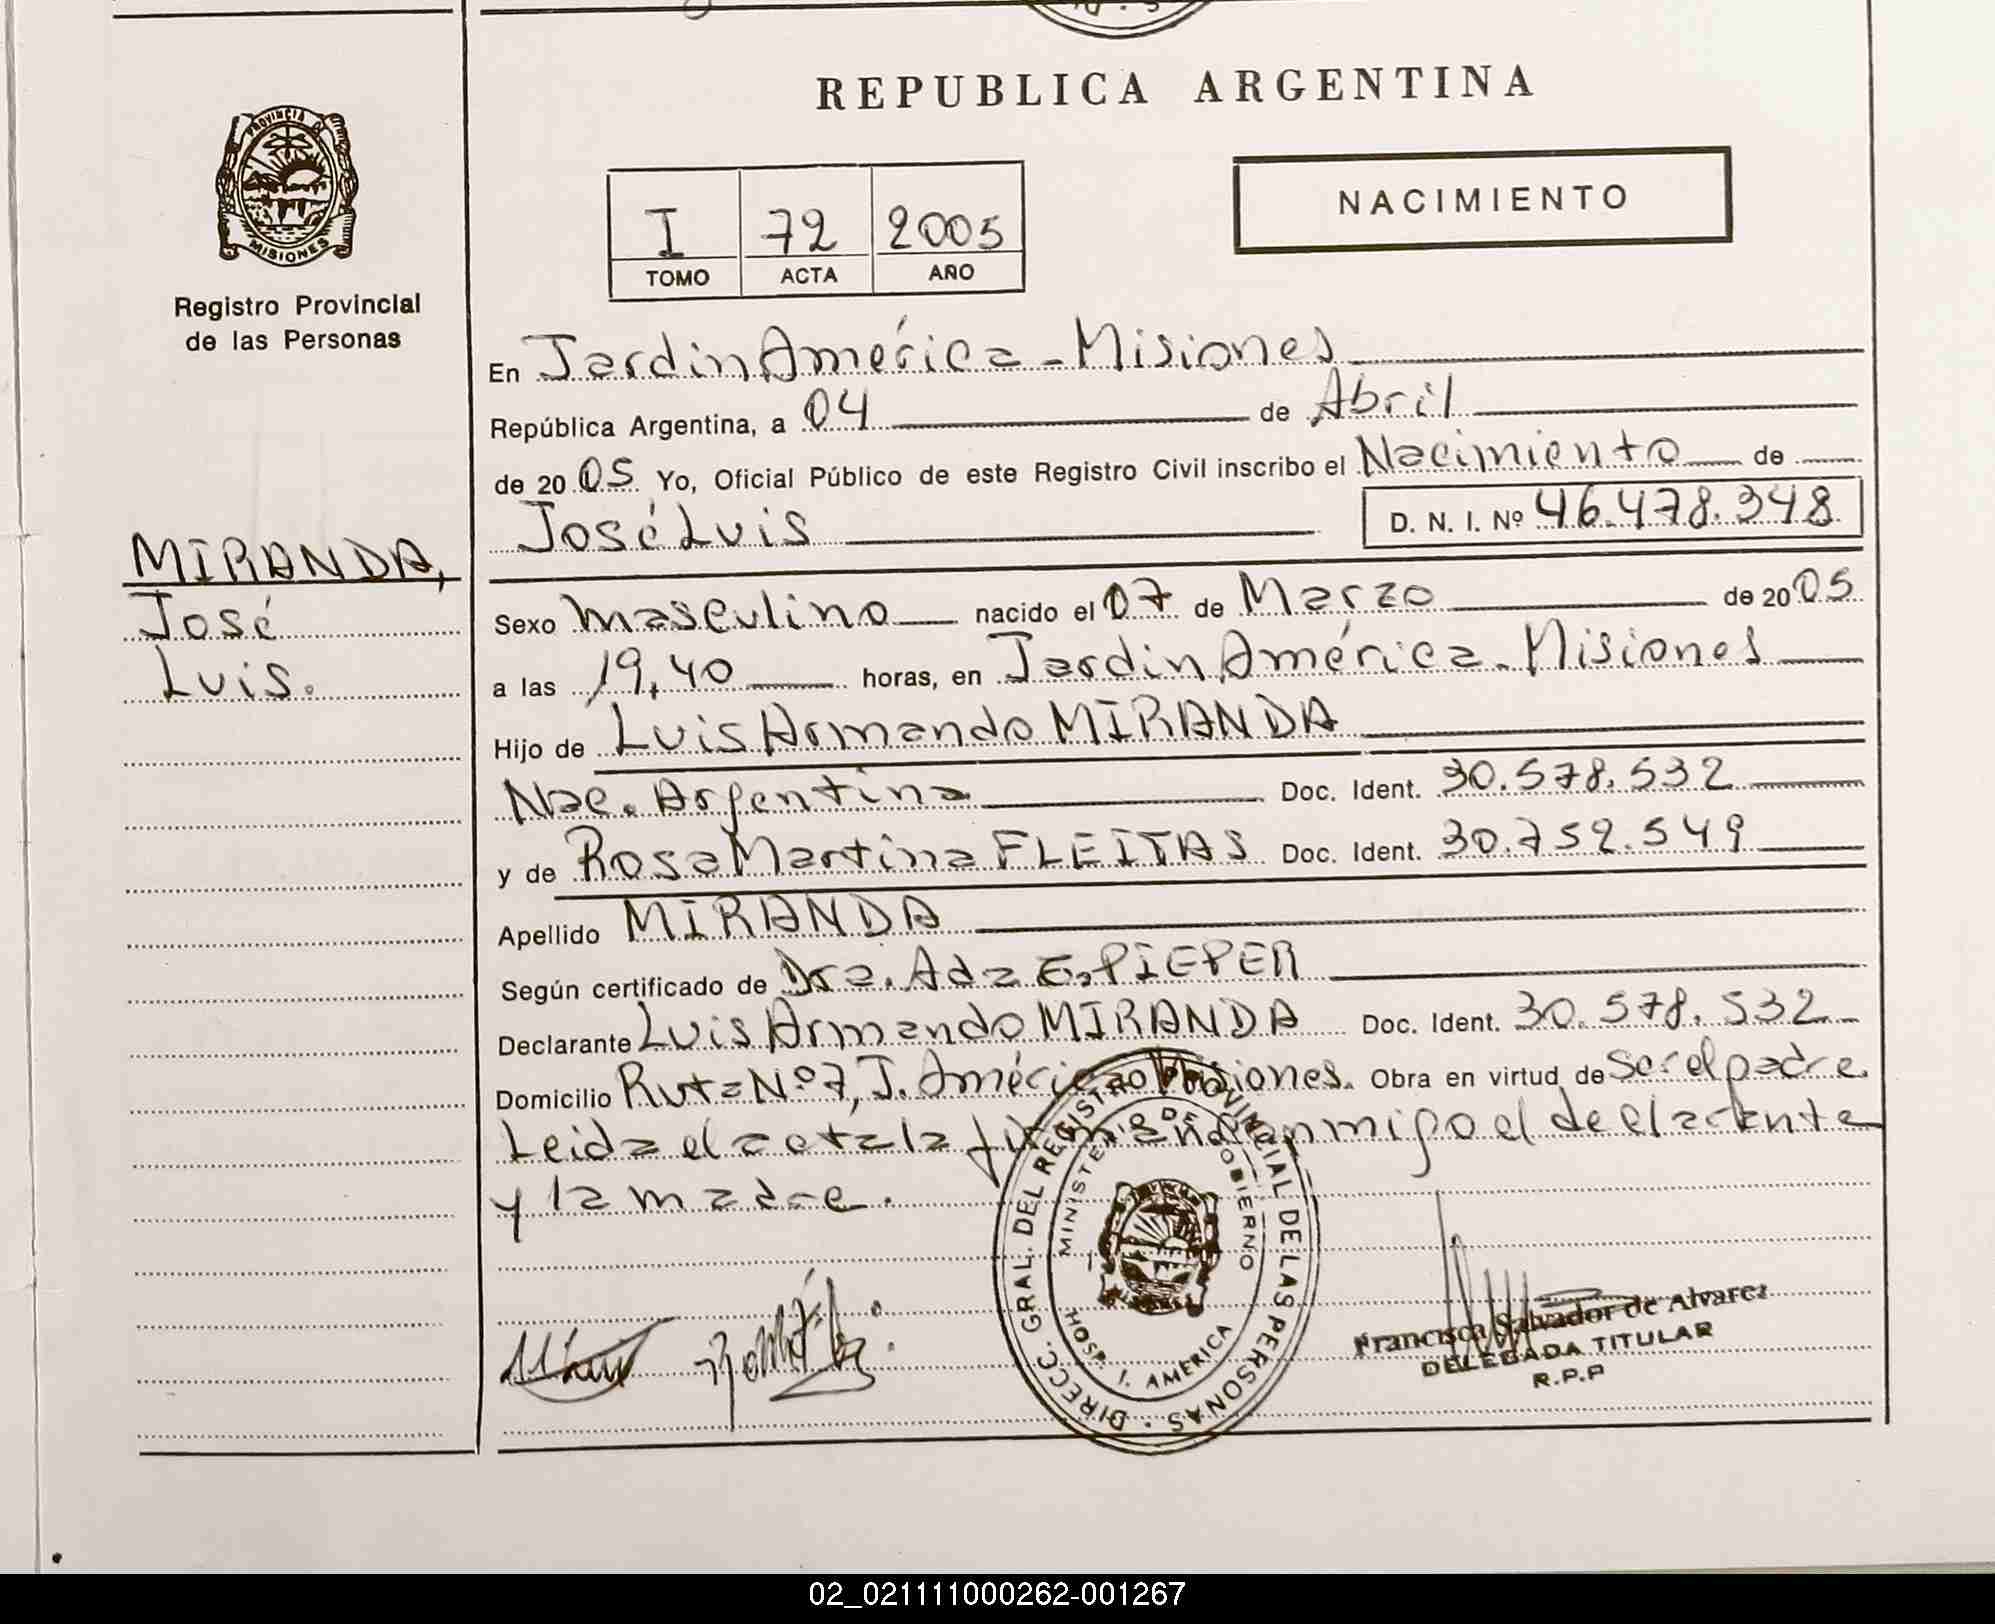 REPUBLICA ARGENTINA
PROVINCIA DE
MISIONES
Registro Provincial
de las Personas
NACIMIENTO
I 72 2005
TOMO ACTA AÑO
En Jardin América - Misiones
República Argentina, a 04 de Abril
de 2005 Yo, Oficial Público de este Registro Civil inscribo el Nacimiento de
José Luis D. N. I. Nº 46.478.348
MIRANDA,
José
Luis.
Sexo masculino nacido el 07 de Marzo de 2005
a las 19,40 horas, en Jardin América - Misiones
Hijo de Luis Armando MIRANDA
Nac. Argentina Doc. Ident. 30.578.532
y de Rosa Martina FLEITAS Doc. Ident. 30.752.549
Apellido MIRANDA
Según certificado de Dra. Ada E. PIEPER
Declarante Luis Armando MIRANDA Doc. Ident. 30.578.532
Domicilio Ruta Nº 7, J. América Misiones. Obra en virtud de ser el padre.
Leida el acta la firman conmigo el declarante
y la madre.
DIRECC. GRAL. DEL REGISTRO PROVINCIAL DE LAS PERSONAS
MINISTERIO DE GOBIERNO
HOSP. J. AMERICA
Francisca Salvador de Alvarez
DELEGADA TITULAR
R.P.P
02_021111000262-001267